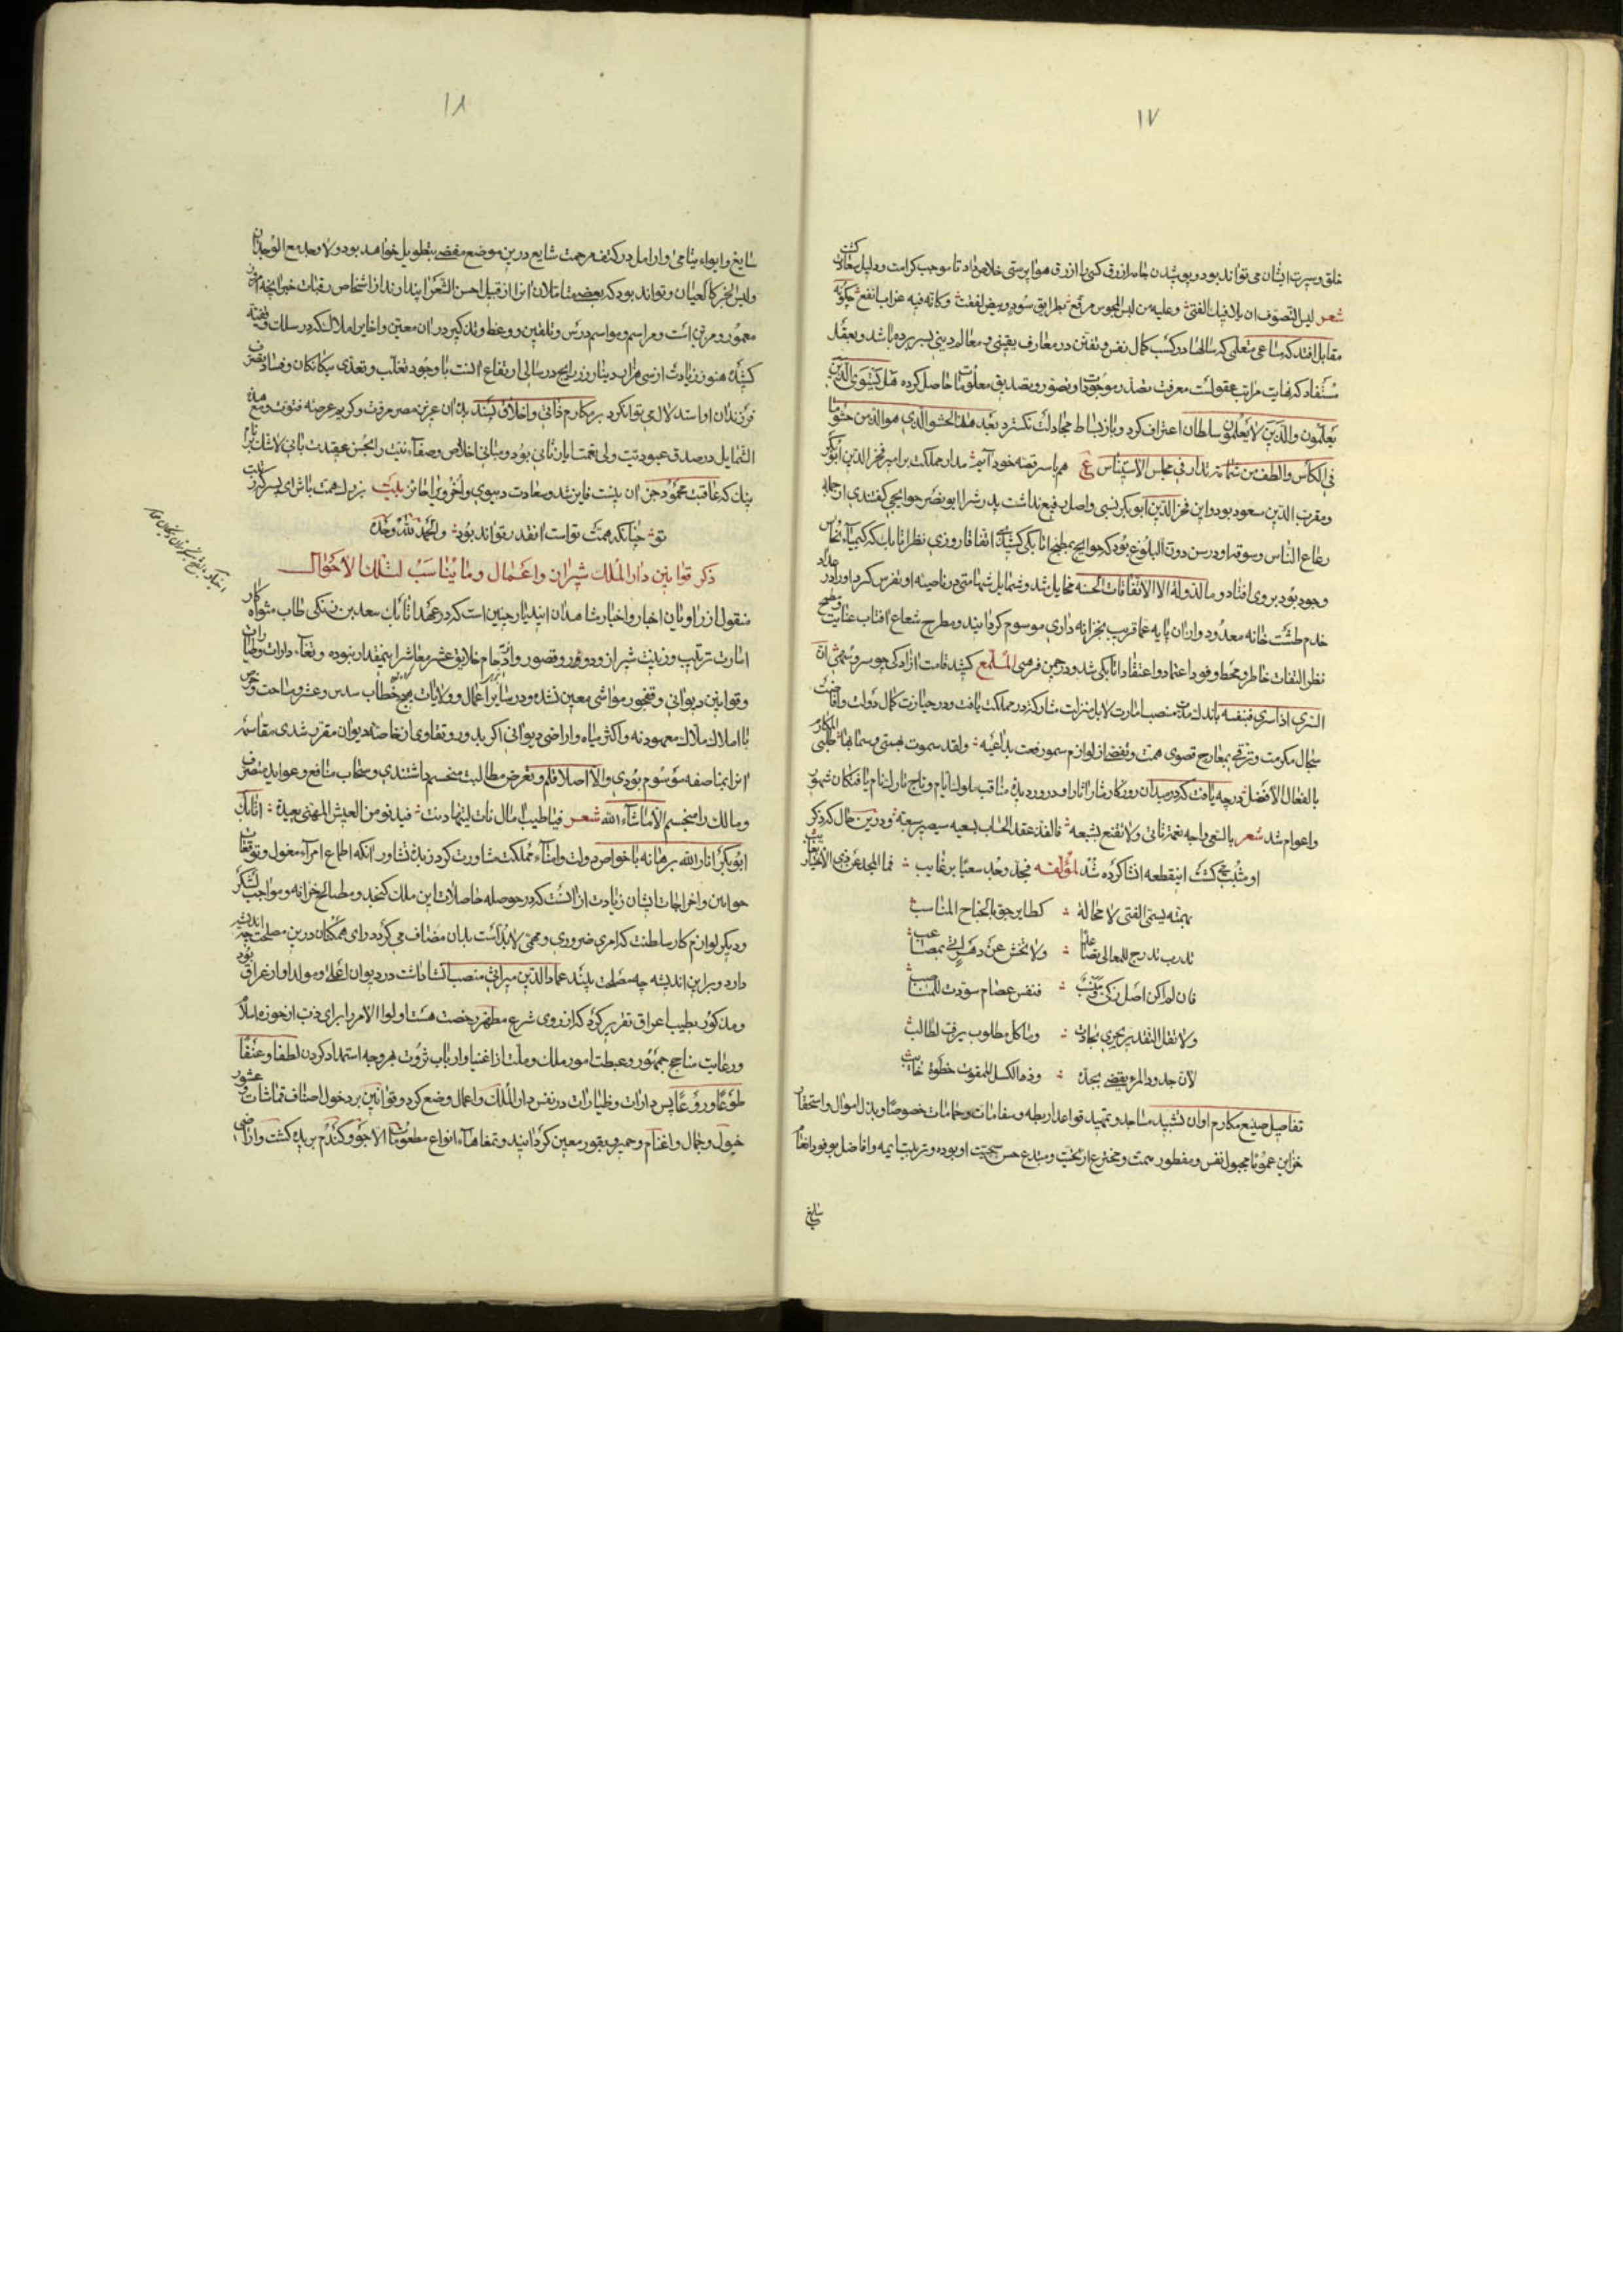 ۱۷
خلق و سیرت ایشان می تواند بود و پوشیدن جامه ازرق کسی را از رق هواپرستی خلاص نداد تا موجب کرامت و دلیل سعادت کشت
شعر لیس التصوف ان یلاقیک الفتی وعلیه من لبس المجوس مرقع بطرایق سود وبیض لففت وکانه فیه غراب ابقع چکونه
مقابل افتد که ساعی متعلمی که سالها در کسب کمال نفس و تفنن در معارف یقینی و معالم دینی بسر برده باشد و بعقل
مستفاد که نهایت مراتب عقولست معرفت موجودات او تصور و تصدیق معلومات حاصل کرده هل یستوی الذین
یعلمون والذین لا یعلمون سلطان اعتراف کرد و باز بساط مجادلت نکسترد بعد هذا الحشو الذی هو الذ من حشو ما
فی الکاس والطف من فی مجلس الاستیناس ع هم با سر قصه خود آییم مدار مملکت بر امیر فخر الدین ابوبکر
و مقرب الدین مسعود بود و این فخر الدین ابوبکر نسبی و اصلی رفیع نداشت پدرش را ابونصر حوایجی کفتندی از جمله
رعاع الناس و سوقه او در سن دون البلوغ بود که حوایج بمطبخ اتابکی کشیدی اتفاقا روزی نظر اتابک که کیمیاء نحاس
وجود بود بر وی افتاد وما الدولة الا الاتفاقات الحسنه مخایل رشد و شمایل شهامتی در ناصیه او تفرس کرد او را در عداد
خدم طشت خانه معدود و از ان پایه عما قریب بخزانه داری موسوم کردانیدند و مطرح شعاع آفتاب عنایت و مطمح
نظر التفات خاطر و محط وفود اعتماد و اعتقاد اتابکی شد و در چمن کشید قامت آزادکی چو سرو سهی ان
السری اذا سری فبنفسه باندک مدت منصب امارت لا بل منزلت مشارکت در مملکت یافت و در حیازت کمال دولت و افاضت
سجال مکرمت و ترقی بمعارج قصوی همت و تفصی از لوازم سمو رفعت بداعیه ولقد سموت بهمتی وسما بها طلبی المکارم
بالفعال الافضل درجه یافت که در میدان روزکار نثار آثار او در ورد مناقب ملوک ایام و تاج تارک انام یافتکان شهور
و اعوام شد شعر بالسعی واجه نعمة تاتی ولا تقنع بشبعه فالفذ عقد الحساب بسعیه سیصیر سبعه و درین حال که ذکر
او مثبت کشت این قطعه انشا کرده شد لمؤلفه فجد وجد سعیا برغایب فما المجد عن ذی الاختیار بغایب
بهمته یسمی الفتی لا محاله کطایر جو بالجناح المناسب
تدرب تدرج للمعالی تصاعدا ولا تخش عن دهر اتی بمصاعب
فان لم اکن اصل زکی فنفس عصام سودت للمناصب
ولا تقل التقدیر یجری نجاده وما کل مطلوب یرف لطالب
لان جدود المرء یقضی بجده وذو الکسل الممقوت خطوه خایب
تفاصیل صنیع مکارم او ان تشیید مساجد و تمهید قواعد اربطه و سقایات و حمامات خصوصا و بذل اموال و استحقار
خزاین عموما مجبول نفس و مفطور همت و مخترع اریحیت و مبتدع حسن سجیت او بوده و تربیت ایمه و افاضل بوفور انعام
سایغ
۱۸
سایغ و ایواء یتامی و ارامل در کنف مرحمت شایع درین موضع مفضی بتطویل خواهد بود ولا وجد مع الوجدان
ولیس الخبر کالعیان و تواند بود که بعضی متاملان انرا از قبیل احسن الشعر اکذبه پندارند از اشخاص رقبات خیر آنچه اکنون
معمور و مزین است و مراسم و مواسم درس و تلقین و وعظ و تذکیر در ان معین و اغایر املاک که در سلک وقفیه
کشیده هنوز زیادت از سی هزار دینار زر رایج در سالی ارتفاع آنست با وجود تغلب و تعدی بیکانکان و فساد تصرف
فرزندان او استدلال می توان کرد بر مکارم ذاتی و اخلاق پسندیده ان عزیز مصر مروت و کریم عرصه فتوت و مع هذه
الشمایل در صدق عبودیت ولی نعمت ایازثانی بود و مبانی اخلاص و صفاء نیت را بحسن عقیدت بانی لاشک برای
بندکی عاقبت محمود جزان بدست فایز شد و سعادت دنیوی و اخروی را حایز بیت بزرک همت باش ای پسر کز رتبت
تو چنانکه همت تواست انقدر تواند بود والحمد لله وحده
ذکر قوانین دار الملک شیراز و اعمال و ما یناسب لتلک الاحوال
منقول از راویان اخبار و اخبار شاهدان این دیار چنین است که در عهد اتابک سعد بن زنکی طاب مثواه کار
امارت ترتیب و زینت شیراز و دور و قصور و ازدحام خلایق عشر معاشر اینمقدار نبوده و تمغاء دارات و طیارات
و قوانین دیوانی و قفجور مواشی معین نشده و در سایر اعمال و ولایات بهیچ خطاب سدس و عشر و مساحت و حرص
با املاک ملاک معهود نه و اکثر میاه و اراضی دیوانی اکر بدور و تقاوی از خاصه دیوان مقرر شدی مقاسمه
انرا بمناصفه موسوم بودی و الا اصلا قلم و تعرض مطالبت منحسم داشتندی و سحاب منافع و عواید متصرفان
و مالک را منجسم الا ماشاء الله شعر فیا طیب ایام لنا دنت فیدنو من العیش المهنی بعیده اتابک
ابوبکر انار الله برهانه با خواص دولت و امناء مملکت مشاورت کرد زبده تشاور آنکه اطماع امراء مغول و توقعات
خواتین و اخراجات ایشان زیادت از انست که در حوصله حاصلات این ملک کنجد و مصالح خزانه و مواجب لشکر
و دیکر لوازم کار سلطنت که امری ضروری و مهمی لابدست بدان مضاف می کردد رای همکنان درین مصلحت چه اندیشد
دارد و برین اندیشه چه مصلحت بیند عماد الدین میراثی منصب انشا داشت در دیوان اعلی و مولد او از عراق بود
و مذکور بطیب اعراق تقریر کرد که از روی شرع مطهر رخصت هست اولوا الامر را برای ذب از حوزه اسلام
و رعایت مناجح جمهور و غبطت امور ملک و ملت از اغنیا و ارباب ثروت بهر وجه استمداد کردن لطفا و عنفا
طوعا و روعا پس دارات و طیارات در نفس دار الملک و اعمال وضع کرد و قوانین بر دخول اصناف قماشات و عشور
خیول و جمال و اغنام و حمیر و بقور معین کردانیدند و تمغاهاء انواع مطعومات الا جو و کندم برید کشت و اراضی